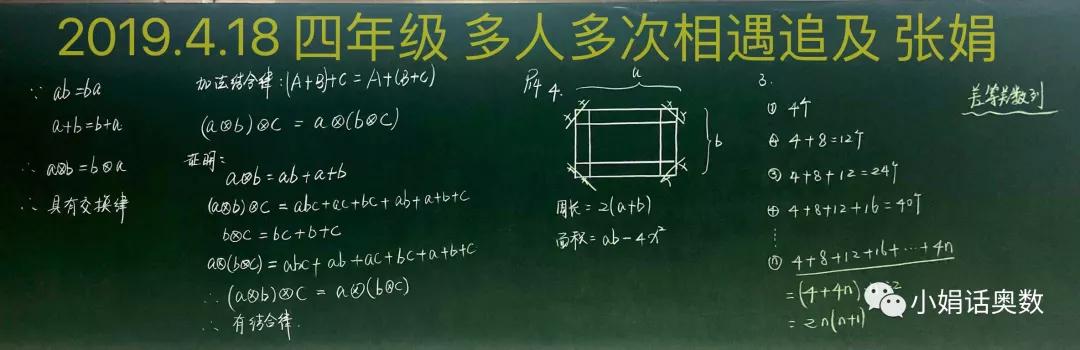 2019.4.18 四年级 多人多次相遇追及 张娟
∵ ab=ba
a+b=b+a
∴ a⊗b=b⊗a
∴ 具有交换律
加法结合律:(A+B)+C=A+(B+C)
(a⊗b)⊗c = a⊗(b⊗c)
证明:
a⊗b=ab+a+b
(a⊗b)⊗c=abc+ac+bc+ab+a+b+c
b⊗c=bc+b+c
a⊗(b⊗c)=abc+ab+ac+bc+a+b+c
∴(a⊗b)⊗c = a⊗(b⊗c)
∴ 有结合律.
P4 4.
a
b
x
周长=2(a+b)
面积=ab-4x²
3.
① 4个
② 4+8=12个
③ 4+8+12=24个
④ 4+8+12+16=40个
⋮
ⓝ 4+8+12+16+…+4n
=(4+4n) 2
=2n(n+1)
差等差数列
小娟话奥数